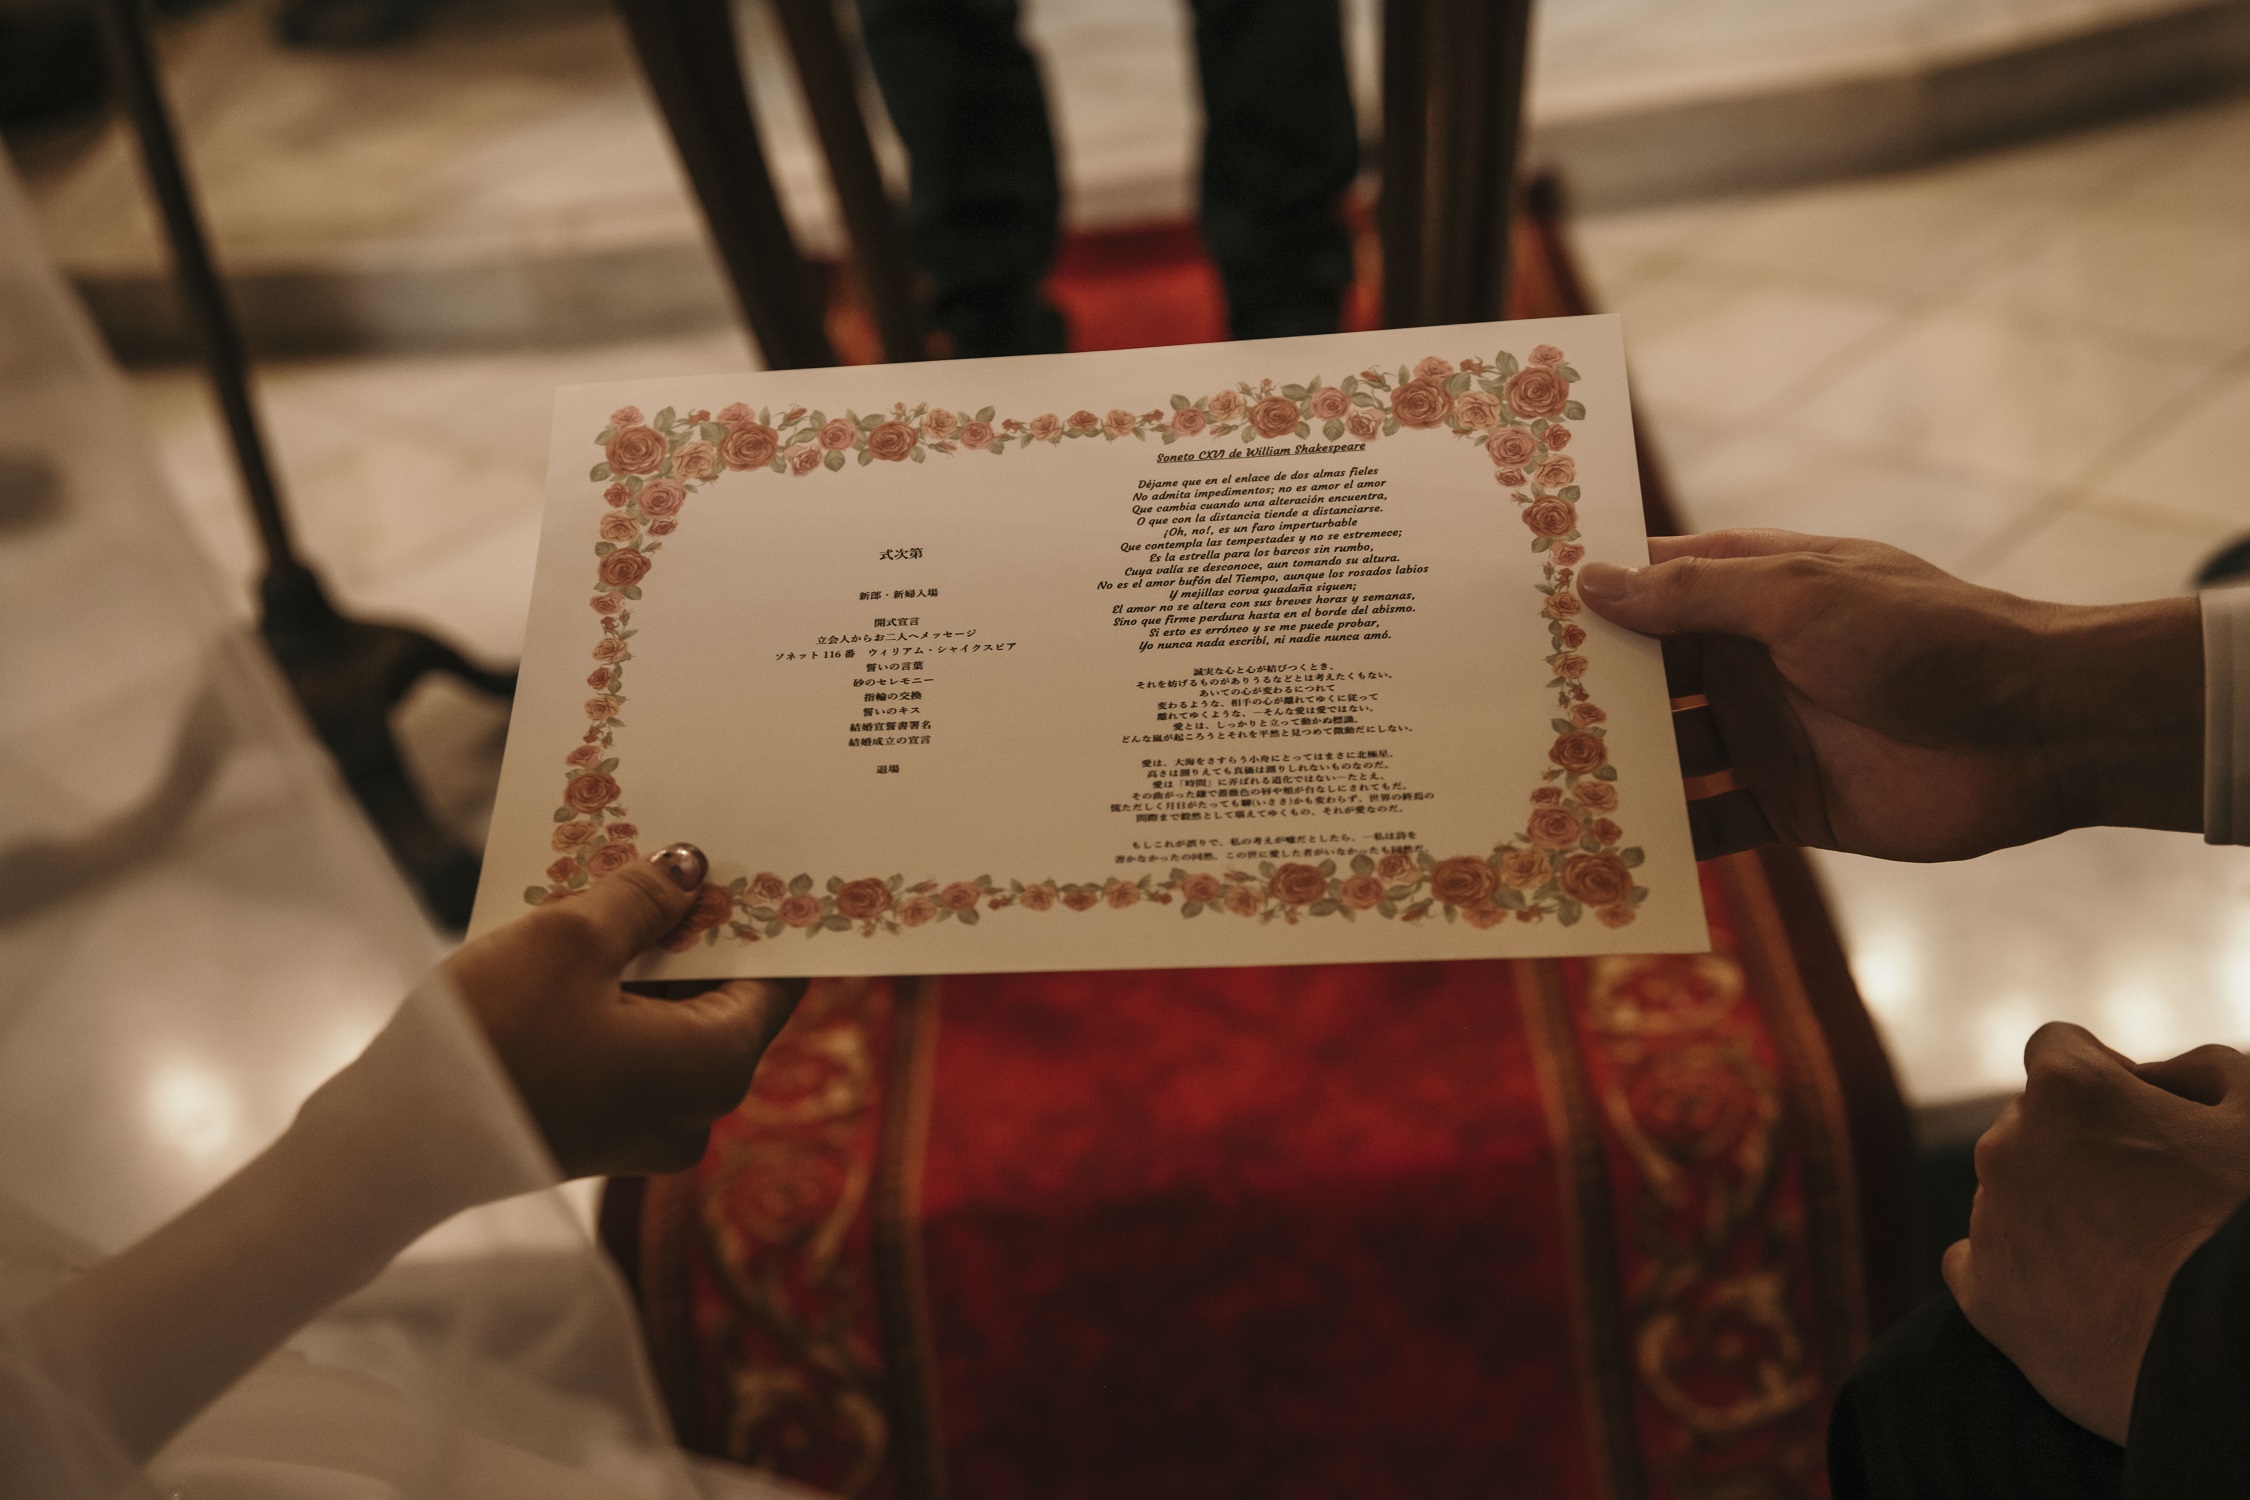 式次第
新郎・新婦入場
開式宣言
立会人からお二人へメッセージ
ソネット 116 番　ウィリアム・シャイクスピア
誓いの言葉
砂のセレモニー
指輪の交換
誓いのキス
結婚宣誓書署名
結婚成立の宣言
退場
Soneto CXVI de William Shakespeare
Déjame que en el enlace de dos almas fieles
No admita impedimentos; no es amor el amor
Que cambia cuando una alteración encuentra,
O que con la distancia tiende a distanciarse.
¡Oh, no!, es un faro imperturbable
Que contempla las tempestades y no se estremece;
Es la estrella para los barcos sin rumbo,
Cuya valía se desconoce, aun tomando su altura.
No es el amor bufón del Tiempo, aunque los rosados labios
Y mejillas corva guadaña siguen;
El amor no se altera con sus breves horas y semanas,
Sino que firme perdura hasta en el borde del abismo.
Si esto es erróneo y se me puede probar,
Yo nunca nada escribí, ni nadie nunca amó.
誠実な心と心が結びつくとき、
それを妨げるものがありうるなどとは考えたくもない。
あいての心が変わるにつれて
変わるような、相手の心が離れてゆくに従って
離れてゆくような、―そんな愛は愛ではない。
愛とは、しっかりと立って動かぬ標識、
どんな嵐が起ころうとそれを平然と見つめて微動だにしない。
愛は、大海をさすらう小舟にとってはまさに北極星。
高さは測りえても真価は測りしれないものなのだ。
愛は「時間」に弄ばれる道化ではない―たとえ、
その曲がった鎌で薔薇色の唇や頬が台なしにされてもだ。
慌ただしく月日がたっても聊(いささ)かも変わらず、世界の終焉の
間際まで毅然として堪えてゆくもの、それが愛なのだ。
もしこれが誤りで、私の考えが嘘だとしたら、―私は詩を
書かなかったの同然、この世に愛した者がいなかったも同然だ。